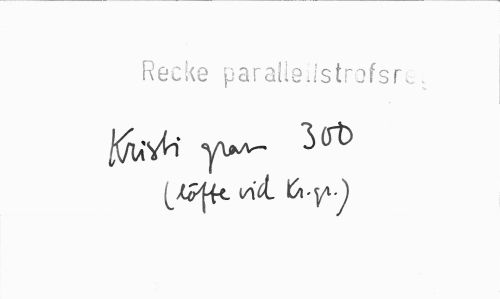 Recke parallellstrofsreg
Kristi grav 300
(löfte vid Kr.gr.)